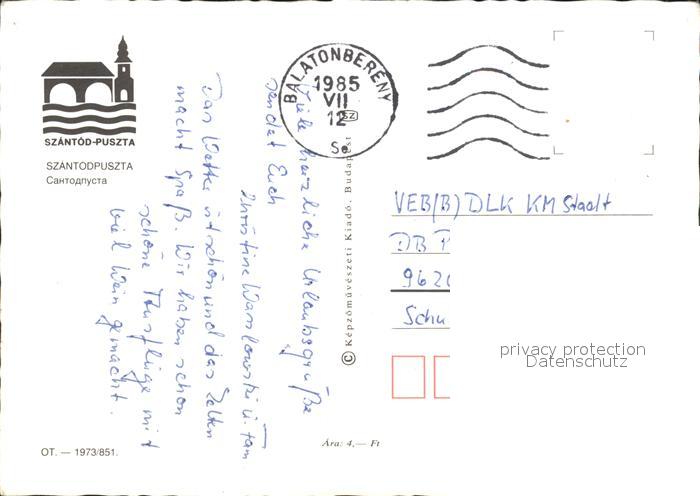 SZÁNTÓD-PUSZTA
SZÁNTODPUSZTA
Сантодпуста
BALATONBERÉNY
1985
VII
12
SZ
Se
Viele herzliche Urlaubsgrüße
sendet Euch
Christine u. Fam
Das Wetter ist schön und das Zelten
macht Spaß. Wir haben schon
schöne Ausflüge mit
viel Wein gemacht.
© Képzőművészeti Kiadó, Budapest
VEB(B) DLK KM Stadt
DB
962
Schu
privacy protection
Datenschutz
OT. — 1973/851.
Ára: 4,— Ft